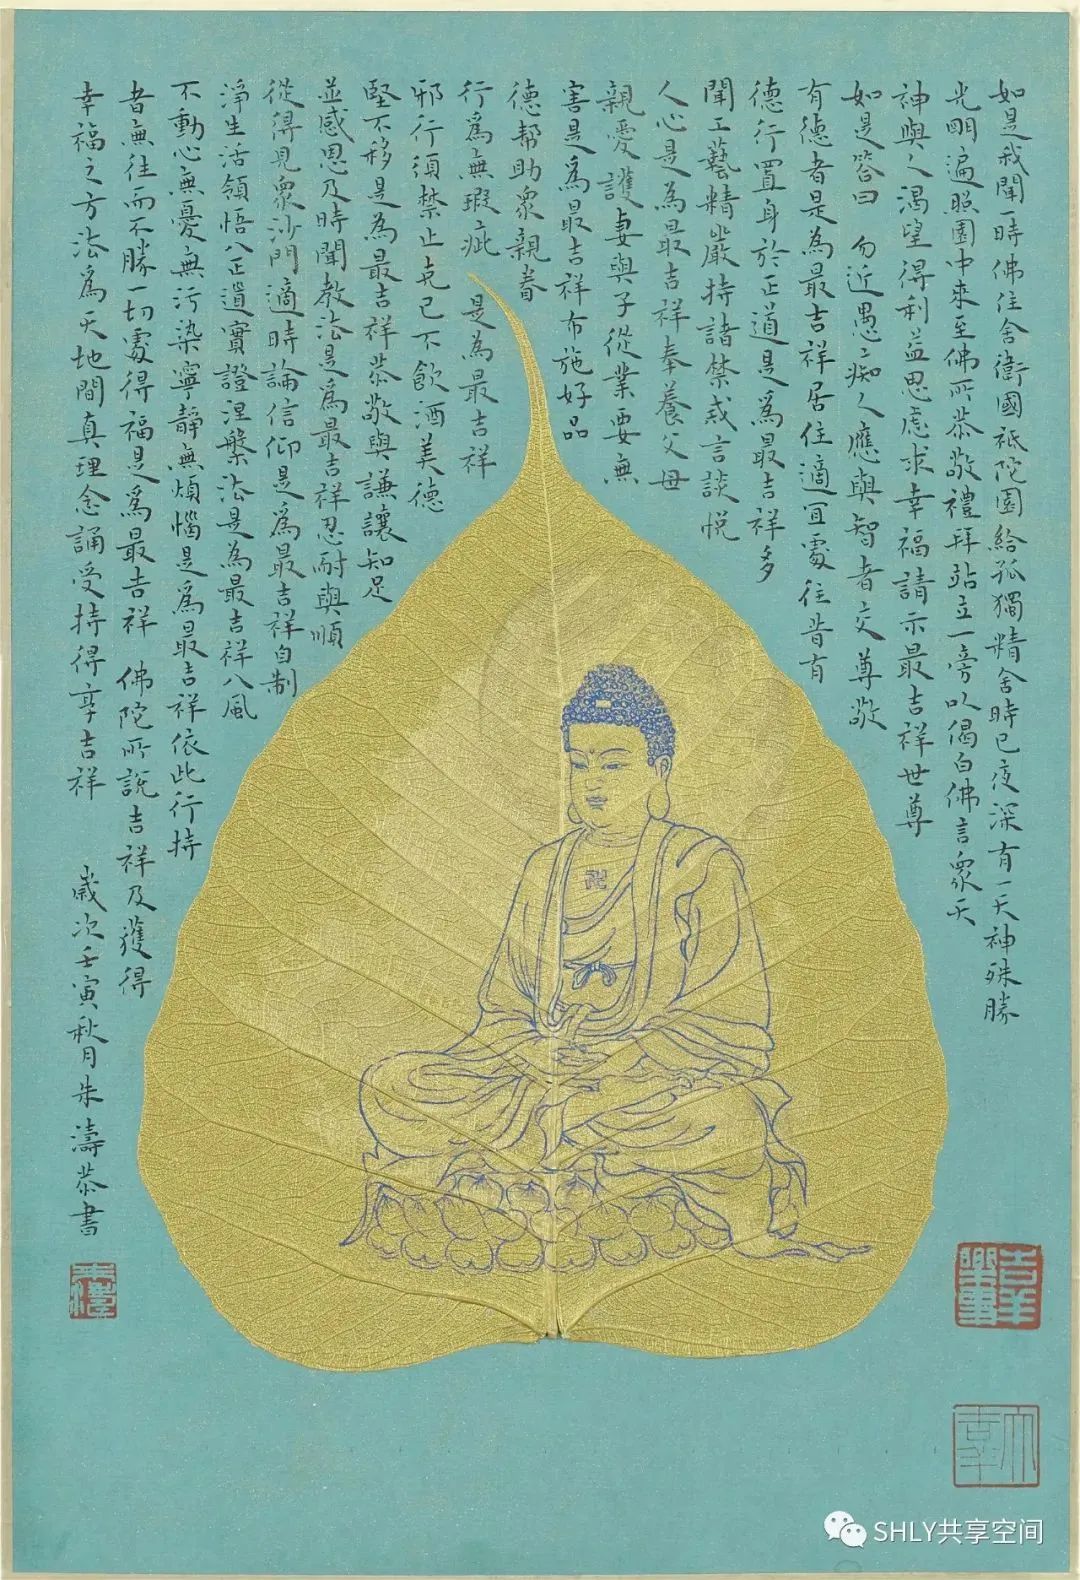 如是我聞一時佛住舍衛國祇陀園給孤獨精舍時已夜深有一天神殊勝
光明遍照園中來至佛所恭敬禮拜站立一旁以偈白佛言眾天
神與人渴望得利益思慮求幸福請示最吉祥世尊
如是答曰 勿近愚癡人應與智者交尊敬
有德者是為最吉祥居住適宜處往昔有
德行置身於正道是為最吉祥多
聞工藝精嚴持諸禁戒言談悅
人心是為最吉祥奉養父母
親愛護妻與子從業要無
害是為最吉祥布施好品
德帮助眾親眷
行為無瑕疵 是為最吉祥
邪行須禁止克己不飲酒美德
堅不移是為最吉祥恭敬與謙讓知足
並感恩及時聞教法是為最吉祥忍耐與順
從得見眾沙門適時論信仰是為最吉祥自制
淨生活領悟八正道實證涅槃法是為最吉祥八風
不動心無憂無污染寧靜無煩惱是為最吉祥依此行持
者無往而不勝一切處得福是為最吉祥 佛陀所說吉祥及獲得
幸福之方法為天地間真理念誦受持得享吉祥 歲次壬寅秋月朱濤恭書
卍
吉羊
樂事
大吉羊
SHLY共享空间